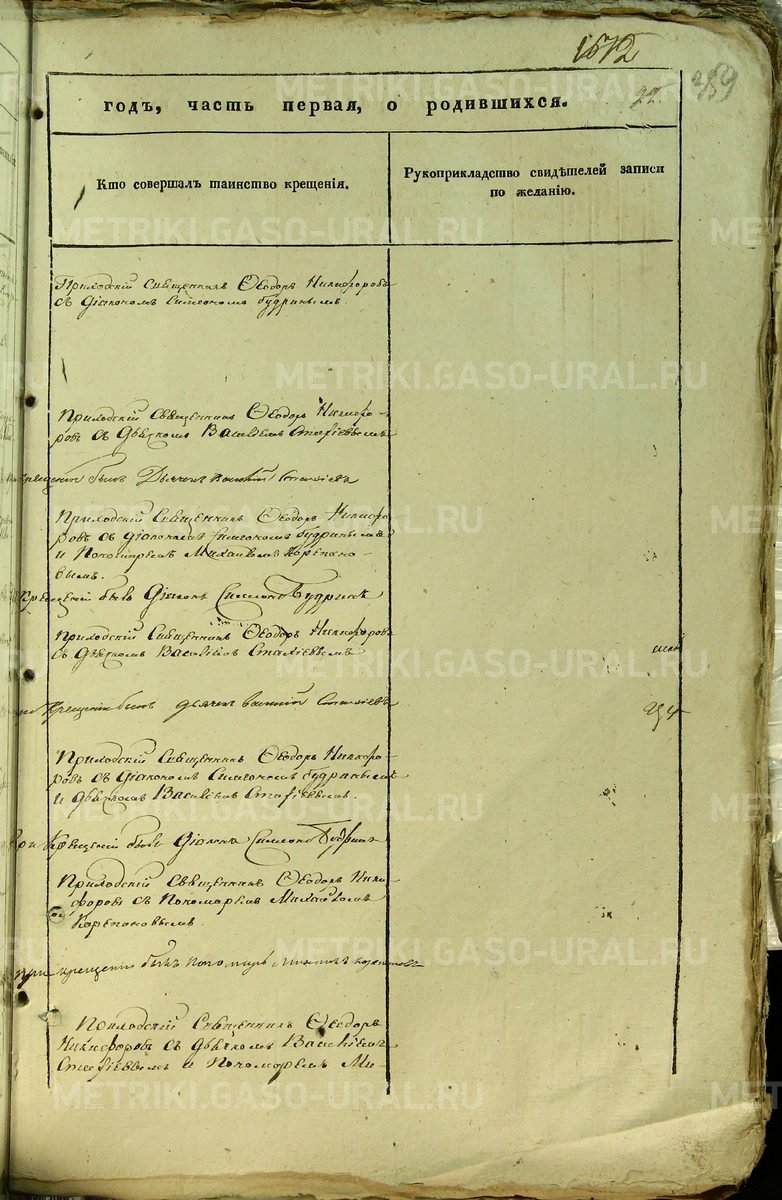 1672
359
годъ, часть первая, о родившихся.
22.
Кто совершалъ таинство крещенія.
Рукоприкладство свидѣтелей записи
по желанію.
Приходскій Священникъ Ѳеодоръ Никифоровъ
съ Діакономъ Симеономъ Будринымъ.
Приходскій Священникъ Ѳеодоръ Никифо-
ровъ съ Дьячкомъ Василіемъ Стафіевымъ
крещеніи былъ Дьячек Василий Стафиев
Приходскій Священникъ Ѳеодоръ Никифо-
ровъ съ Діакономъ Симеономъ Будринымъ
и Пономаремъ Михаиломъ Корепано-
вымъ.
Крещеніи былъ Діаконъ Симеонъ Будринъ
Приходскій Священникъ Ѳеодоръ Никифоровъ
съ Дьячкомъ Василіемъ Стафіевымъ
Крещении былъ дьячек Василий Стафиевъ
Приходскій Священникъ Ѳеодоръ Никифо-
ровъ съ Діакономъ Симеономъ Будринымъ
и Дьячкомъ Василіемъ Стафіевымъ.
при Крещеніи былъ Діаконъ Симеонъ Будринъ
Приходскій Священникъ Ѳеодоръ Ники-
форовъ съ Пономаремъ Михаиломъ
Корепановымъ.
при крещении былъ пономарь Михаил Корепановъ
Приходскій Священникъ Ѳеодоръ
Никифоровъ съ Дьячкомъ Василіемъ
Стафіевымъ и Пономаремъ Ми-
METRIKI.GASO-URAL.RU